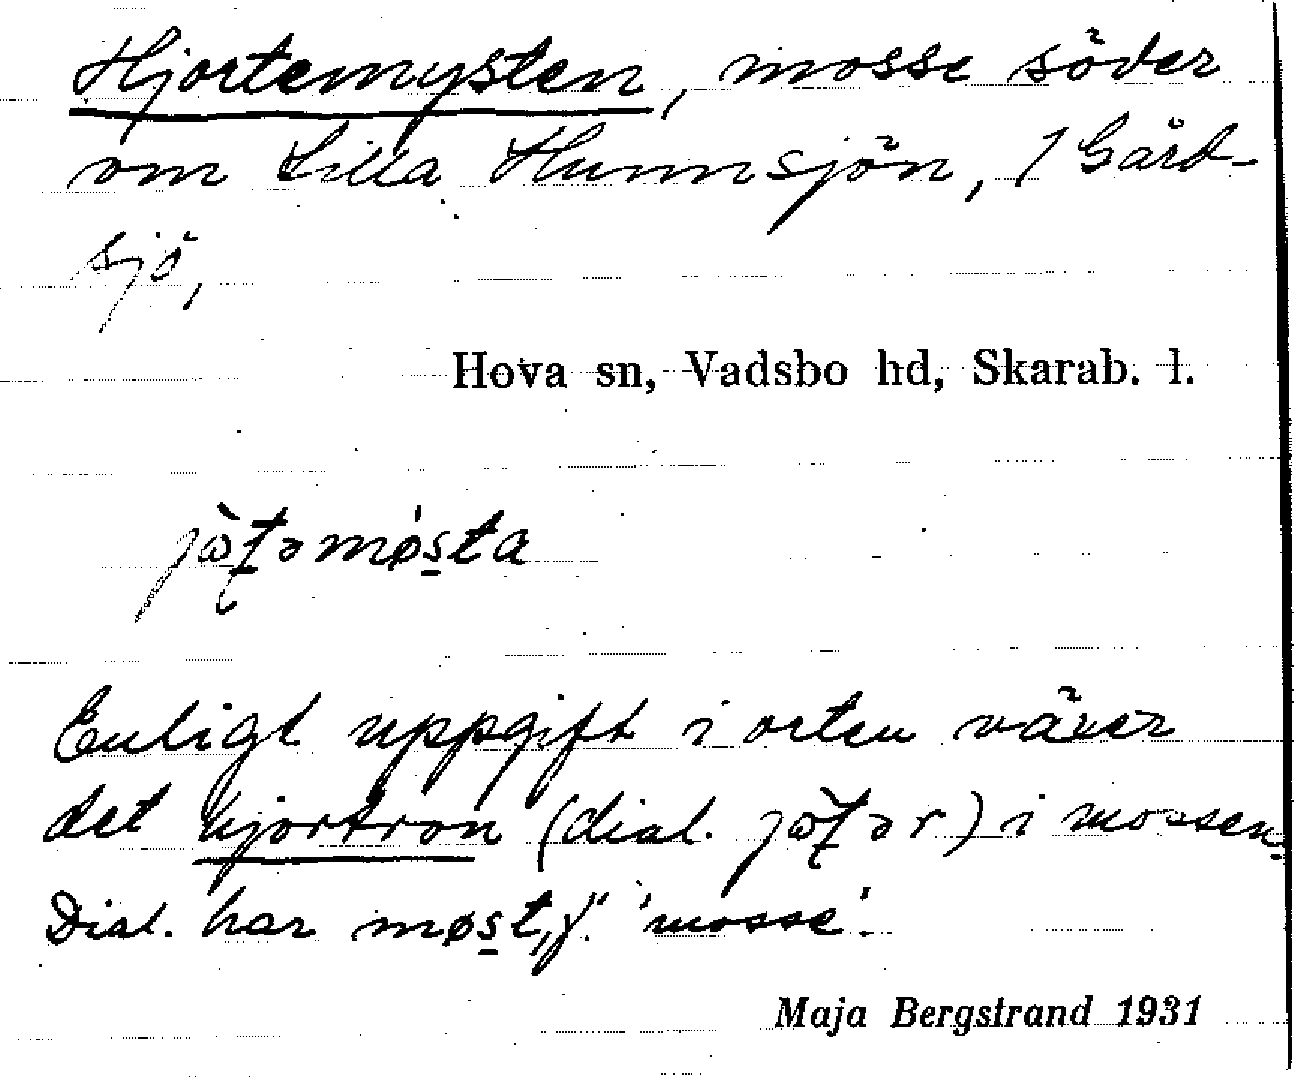 Hjortemysten, mosse söder
om Lilla Hunnsjön, 1 Gård-
sjö,
Hova sn, Vadsbo hd, Skarab. l.
jòʈəmǿsta
Enligt uppgift i orten växer
det hjortron (dial. jòʈər) i mossen.
Dial. har møst, f. 'mosse'.
Maja Bergstrand 1931